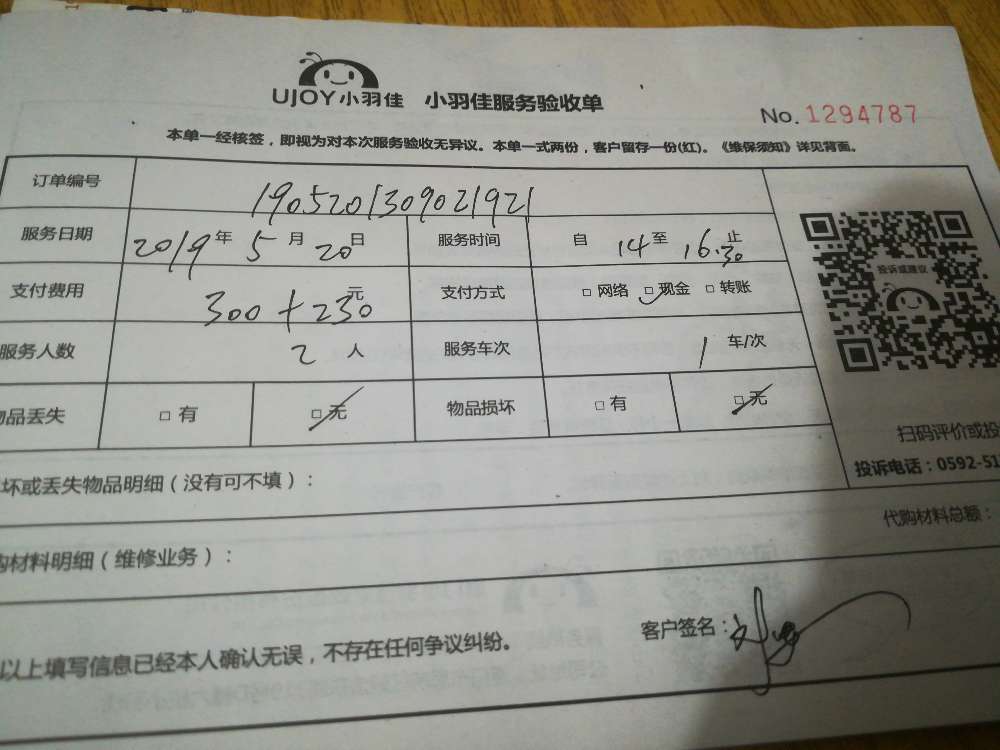 UJOY小羽佳 小羽佳服务验收单
No. 1294787
本单一经核签，即视为对本次服务验收无异议。本单一式两份，客户留存一份(红)。《维保须知》详见背面。
订单编号 1905201309021921
服务日期 2019年 5月 20日 服务时间 自 14至 16.30止
支付费用 300+230元 支付方式 □网络 □现金 □转账
服务人数 2人 服务车次 1车/次
物品丢失 □有 □无 物品损坏 □有 □无
投诉或建议
扫码评价或投
投诉电话：0592-51
坏或丢失物品明细（没有可不填）：
代购材料总额：
购材料明细（维修业务）：
以上填写信息已经本人确认无误，不存在任何争议纠纷。
客户签名：